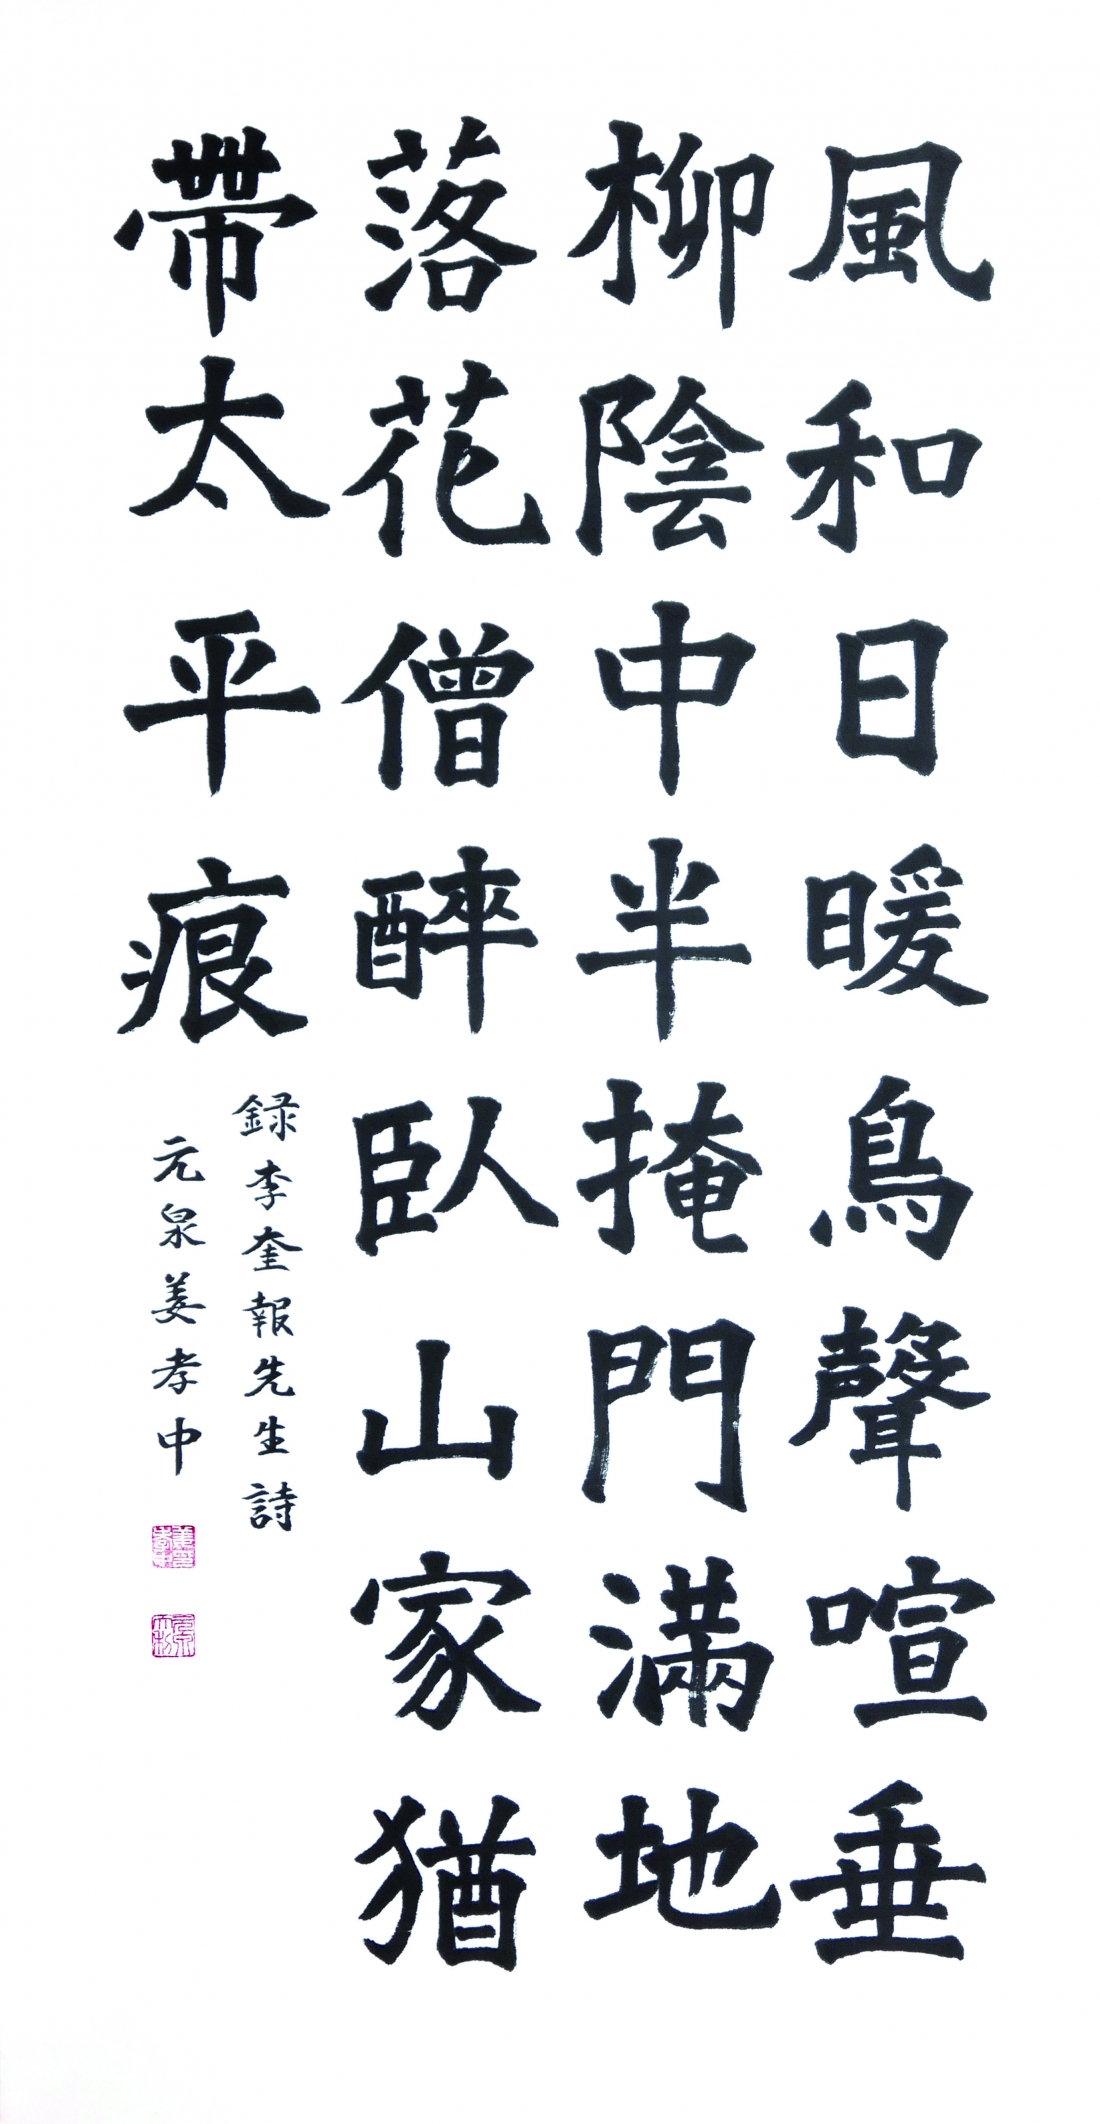 風和日暖鳥聲喧垂
柳陰中半掩門滿地
落花僧醉臥山家猶
帶太平痕
録李奎報先生詩
元泉姜孝中